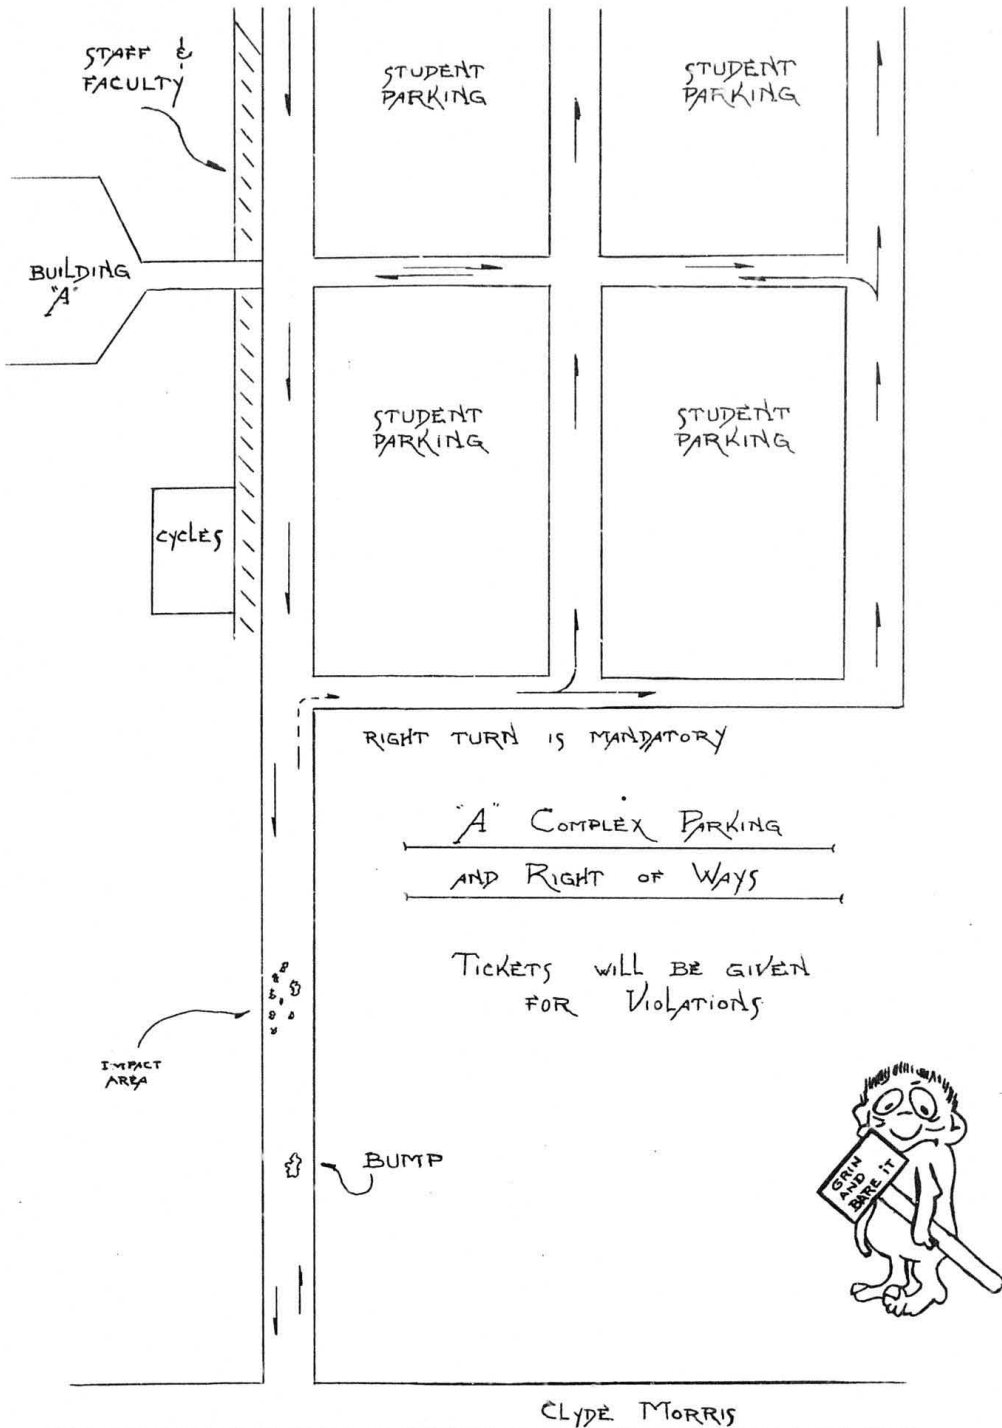 STAFF &
FACULTY
STUDENT
PARKING
STUDENT
PARKING
BUILDING
"A"
STUDENT
PARKING
STUDENT
PARKING
CYCLES
RIGHT TURN IS MANDATORY
"A" COMPLEX PARKING
AND RIGHT OF WAYS
TICKETS WILL BE GIVEN
FOR VIOLATIONS
IMPACT
AREA
BUMP
GRIN
AND
BARE IT
CLYDE MORRIS